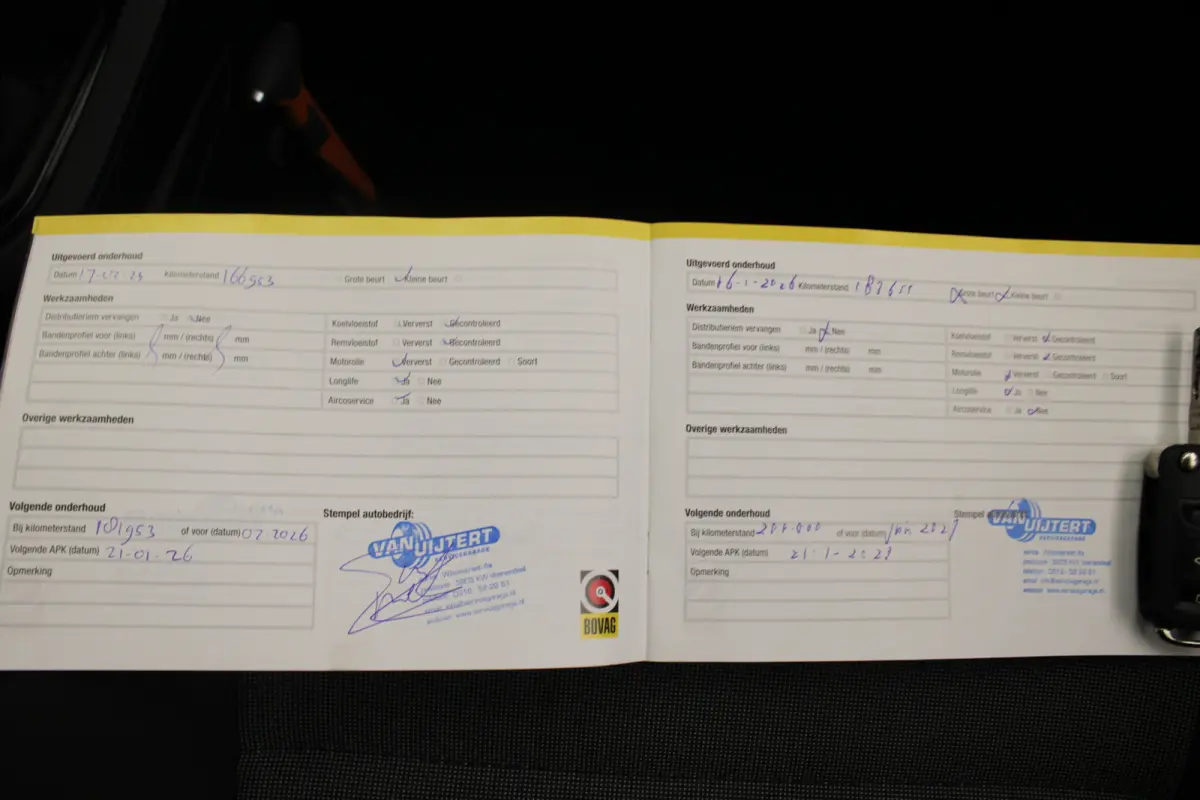 Uitgevoerd onderhoud
Datum Kilometerstand 166953 Grote beurt Kleine beurt
Werkzaamheden
Distributieriem vervangen Ja Nee
Bandenprofiel voor (links) mm / (rechts) mm
Bandenprofiel achter (links) mm / (rechts) mm
Koelvloeistof Ververst Gecontroleerd
Remvloeistof Ververst Gecontroleerd
Motorolie Ververst Gecontroleerd Soort
Longlife Ja Nee
Aircoservice Ja Nee
Overige werkzaamheden
Volgende onderhoud
Bij kilometerstand 181953 of voor (datum) 02 2026
Volgende APK (datum) 21-01-26
Opmerking
Stempel autobedrijf:
VAN UIJTERT
SERVICEGARAGE
BOVAG
Uitgevoerd onderhoud
Datum 16-1-2026 Kilometerstand Grote beurt Kleine beurt
Werkzaamheden
Distributieriem vervangen Ja Nee
Bandenprofiel voor (links) mm / (rechts) mm
Bandenprofiel achter (links) mm / (rechts) mm
Koelvloeistof Ververst Gecontroleerd
Remvloeistof Ververst Gecontroleerd
Motorolie Ververst Gecontroleerd Soort
Longlife Ja Nee
Aircoservice Ja Nee
Overige werkzaamheden
Volgende onderhoud
Bij kilometerstand of voor (datum) jan 2027
Volgende APK (datum)
Opmerking
Stempel
VAN UIJTERT
SERVICEGARAGE